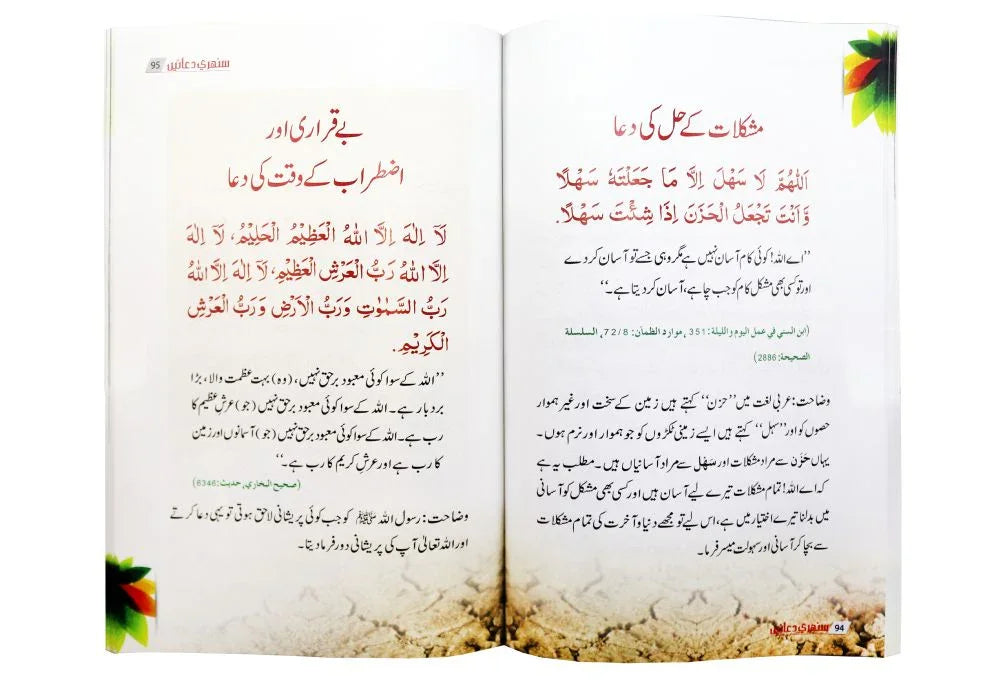 مشکلات کے حل کی دعا
اَللّٰهُمَّ لَا سَهْلَ اِلَّا مَا جَعَلْتَهٗ سَهْلًا
وَّاَنْتَ تَجْعَلُ الْحَزَنَ اِذَا شِئْتَ سَهْلًا.
’’اے اللہ! کوئی کام آسان نہیں ہے مگر وہی جسے تو آسان کر دے
اور تو کسی بھی مشکل کام کو جب چاہے، آسان کر دیتا ہے۔‘‘
(ابن السني في عمل اليوم والليلة: 351، موارد الظمآن: 72/8، السلسلة
الصحيحة: 2886)
وضاحت: عربی لغت میں ’’حزن‘‘ کہتے ہیں زمین کے سخت اور غیر ہموار
حصوں کو اور ’’سہل‘‘ کہتے ہیں ایسے زمینی ٹکڑوں کو جو ہموار اور نرم ہوں۔
یہاں حَزَن سے مراد مشکلات اور سَهْل سے مراد آسانیاں ہیں۔ مطلب یہ ہے
کہ اے اللہ! تمام مشکلات تیرے لیے آسان ہیں اور کسی بھی مشکل کو آسانی
میں بدلنا تیرے اختیار میں ہے، اس لیے تو مجھے دنیا و آخرت کی تمام مشکلات
سے بچا کر آسانی اور سہولت میسر فرما۔
94 سنهري دعائيں
95 سنهري دعائيں
بے قراری اور
اضطراب کے وقت کی دعا
لَآ اِلٰهَ اِلَّا اللهُ الْعَظِيْمُ الْحَلِيْمُ، لَآ اِلٰهَ
اِلَّا اللهُ رَبُّ الْعَرْشِ الْعَظِيْمِ، لَآ اِلٰهَ اِلَّا اللهُ
رَبُّ السَّمٰوٰتِ وَرَبُّ الْاَرْضِ وَرَبُّ الْعَرْشِ
الْكَرِيْمِ.
’’اللہ کے سوا کوئی معبود برحق نہیں، (وہ) بہت عظمت والا، بڑا
بردبار ہے۔ اللہ کے سوا کوئی معبود برحق نہیں (جو) عرشِ عظیم کا
رب ہے۔ اللہ کے سوا کوئی معبود برحق نہیں (جو) آسمانوں اور زمین
کا رب ہے اور عرشِ کریم کا رب ہے۔‘‘
(صحيح البخاري، حديث: 6346)
وضاحت: رسول اللہ ﷺ کو جب کوئی پریشانی لاحق ہوتی تو یہی دعا کرتے
اور اللہ تعالیٰ آپ کی پریشانی دور فرما دیتا۔